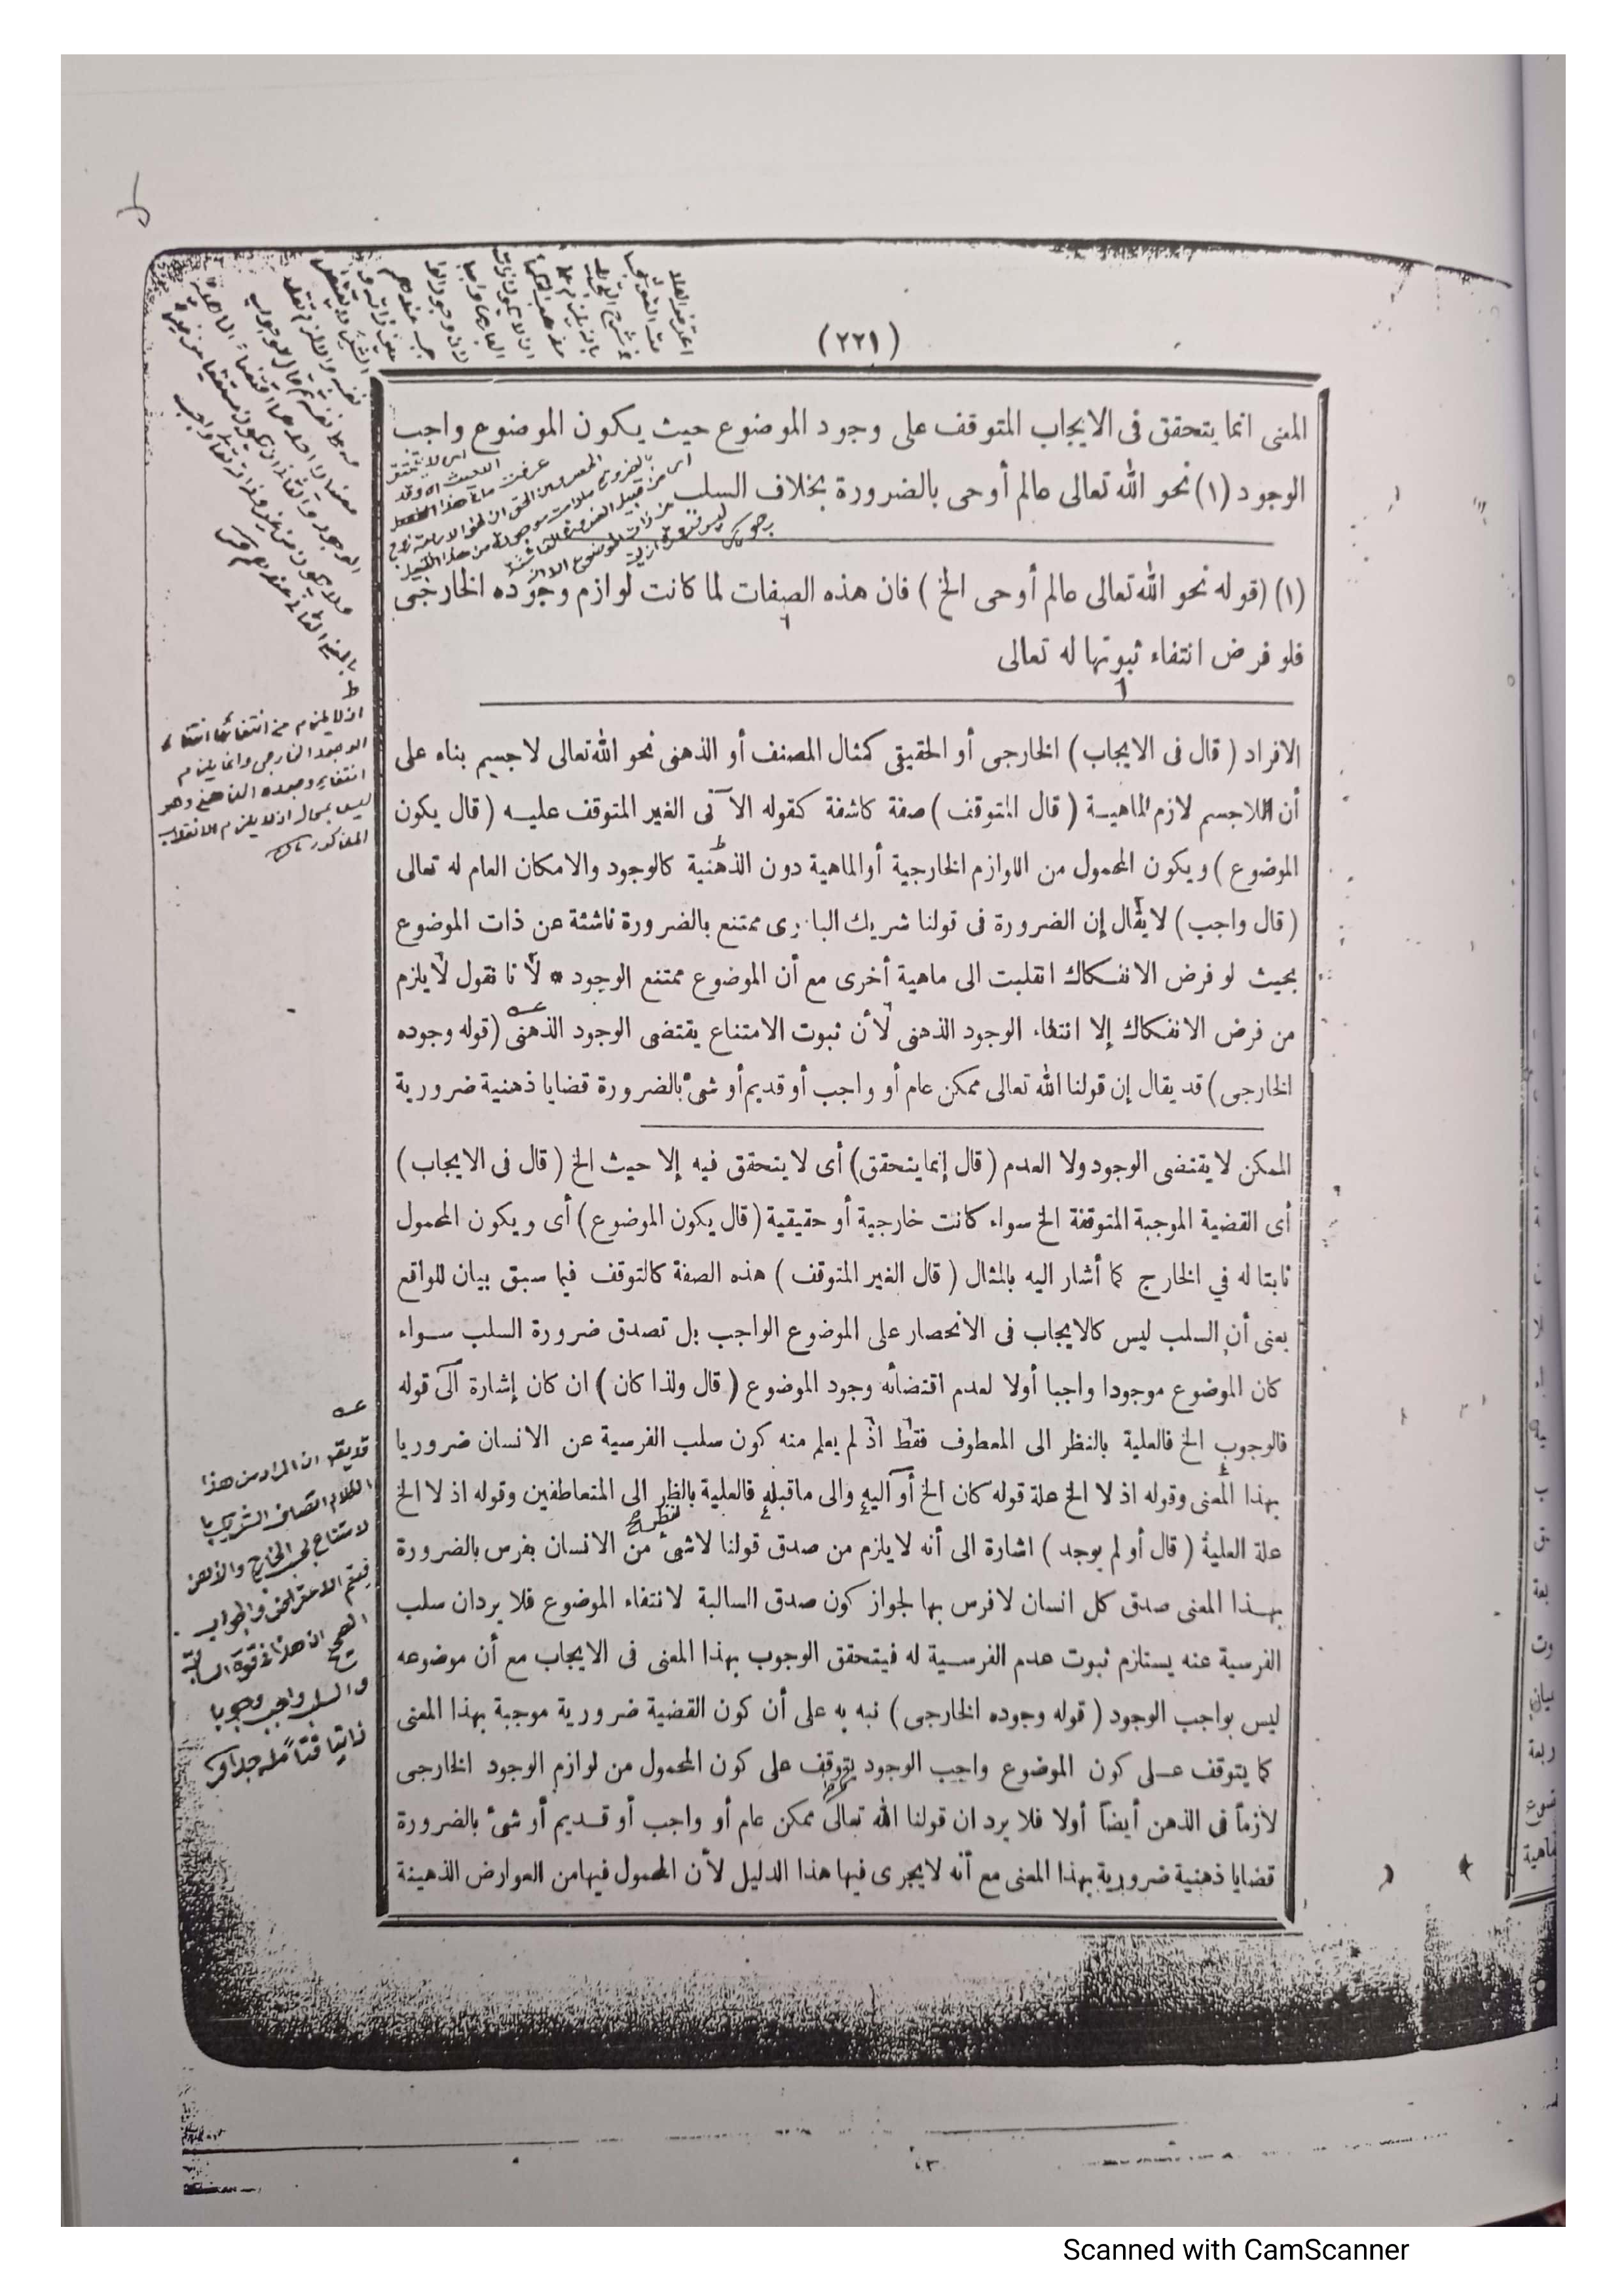 (٢٢١)
المعنى انما يتحقق فى الايجاب المتوقف على وجود الموضوع حيث يكون الموضوع واجب
الوجود (١) نحو الله تعالى عالم أو حى بالضرورة بخلاف السلب
(١) (قوله نحو الله تعالى عالم أو حى الخ) فان هذه الصفات لما كانت لوازم وجوده الخارجى
فلو فرض انتفاء ثبوتها له تعالى
الافراد (قال فى الايجاب) الخارجى أو الحقيقى كمثال المصنف أو الذهنى نحو الله تعالى لاجسم بناء على
أن اللاجسم لازم الماهية (قال المتوقف) صفة كاشفة كقوله الآتى الغير المتوقف عليه (قال يكون
الموضوع) ويكون المحمول من اللوازم الخارجية أوالماهية دون الذهنية كالوجود والامكان العام له تعالى
(قال واجب) لايقال إن الضرورة فى قولنا شريك البارى ممتنع بالضرورة ناشئة عن ذات الموضوع
بحيث لو فرض الانفكاك انقلبت الى ماهية أخرى مع أن الموضوع ممتنع الوجود * لأنا نقول لايلزم
من فرض الانفكاك إلا انتفاء الوجود الذهنى لأن ثبوت الامتناع يقتضى الوجود الذهنى (قوله وجوده
الخارجى) قد يقال إن قولنا الله تعالى ممكن عام أو واجب أو قديم أو شئ بالضرورة قضايا ذهنية ضرورية
الممكن لايقتضى الوجود ولا العدم (قال إنما يتحقق) أى لا يتحقق فيه إلا حيث الخ (قال فى الايجاب)
أى القضية الموجبة المتوقفة الخ سواء كانت خارجية أو حقيقية (قال يكون الموضوع) أى ويكون المحمول
ثابتا له في الخارج كما أشار اليه بالمثال (قال الغير المتوقف) هذه الصفة كالتوقف فيما سبق بيان للواقع
يعنى أن السلب ليس كالايجاب فى الانحصار على الموضوع الواجب بل تصدق ضرورة السلب سواء
كان الموضوع موجودا واجبا أولا لعدم اقتضائه وجود الموضوع (قال ولذا كان) ان كان إشارة الى قوله
فالوجوب الخ فالعلية بالنظر الى المعطوف فقط اذ لم يعلم منه كون سلب الفرسية عن الانسان ضروريا
بهذا المعنى وقوله اذ لا الخ علة قوله كان الخ أو اليه والى ماقبله فالعلية بالظر الى المتعاطفين وقوله اذ لا الخ
علة العلية (قال أو لم يوجد) اشارة الى أنه لايلزم من صدق قولنا لاشئ من الانسان بفرس بالضرورة
بهذا المعنى صدق كل انسان لافرس بها لجواز كون صدق السالبة لانتفاء الموضوع فلا يردان سلب
الفرسية عنه يستلزم ثبوت عدم الفرسية له فيتحقق الوجوب بهذا المعنى فى الايجاب مع أن موضوعه
ليس بواجب الوجود (قوله وجوده الخارجى) نبه به على أن كون القضية ضرورية موجبة بهذا المعنى
كما يتوقف على كون الموضوع واجب الوجود يتوقف على كون المحمول من لوازم الوجود الخارجى
لازماً فى الذهن أيضاً أولا فلا يرد ان قولنا الله تعالى ممكن عام أو واجب أو قديم أو شئ بالضرورة
قضايا ذهنية ضرورية بهذا المعنى مع أنه لايجرى فيها هذا الدليل لأن المحمول فيهامن العوارض الذهينة
اذ لا يلزم من انتفائها انتفاء
الوجود الخارجى وانما يلزم
انتفاء وجوده الذهنى وهو
ليس بمحال اذ لا يلزم الانقلاب
المذكور
قد يقو ان المراد من هذا
الكلام اتصاف الشريك با
لامتناع بحسب الخارج والذهن
فيتم الاعتراض والجواب
الصحيح ان هذا فى قوة السالبة
والسلب واجب وجوبا
ذاتيا فتأمله جدا
Scanned with CamScanner